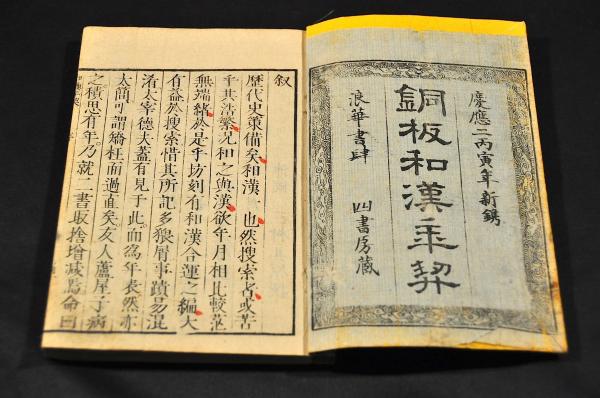 慶應二丙寅年新鐫
銅板和漢秊契
浪華書肆 四書房藏
叙
歷代史策備矣和漢一也然搜索者或苦
乎其浩繁况和之與漢欲年月相比較茫
無端緒於是乎坊刻有和漢合運之編大
有益於搜索惜其所記多猥屑事蹟易混
淆太宰德夫蓋有見于此而爲年表然亦
太簡可謂矯枉而過直矣友人蘆屋子病
之積思有年乃就二書取捨增減焉命曰